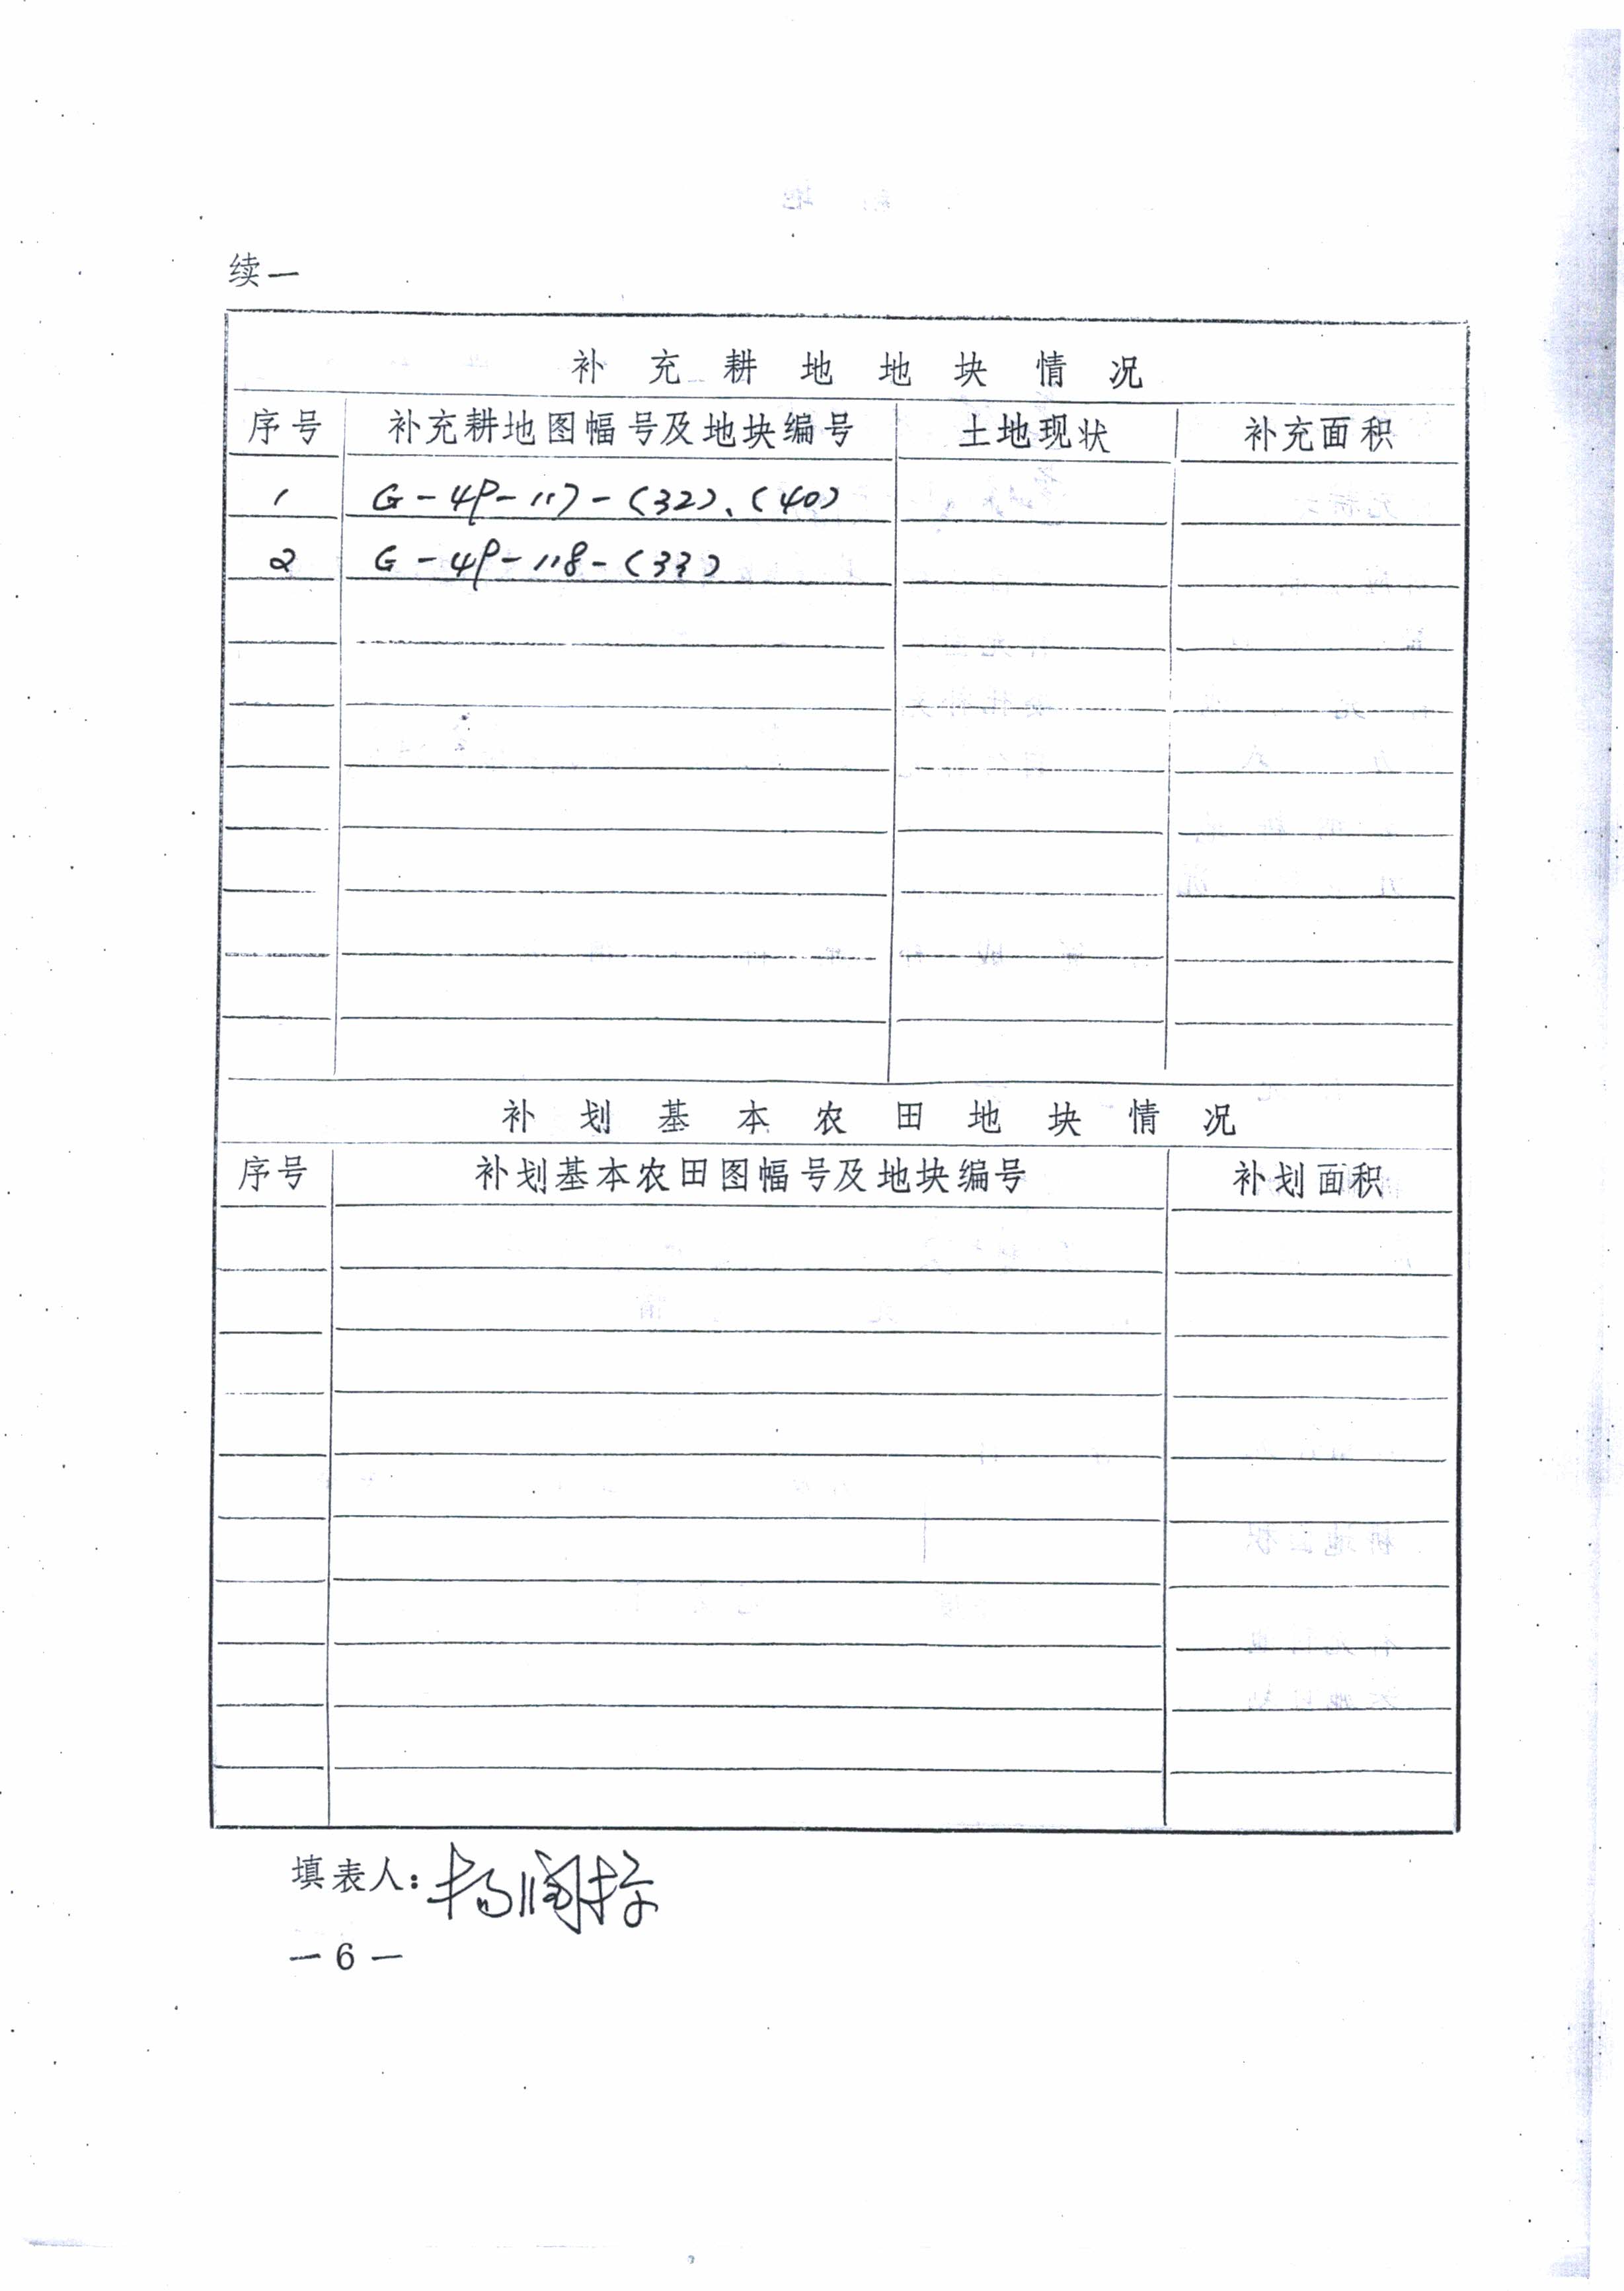 续一
补充耕地地块情况
序号 补充耕地图幅号及地块编号 土地现状 补充面积
1 G-49-117-(32)、(40)
2 G-49-118-(33)
补划基本农田地块情况
序号 补划基本农田图幅号及地块编号 补划面积
填表人：杨
— 6 —